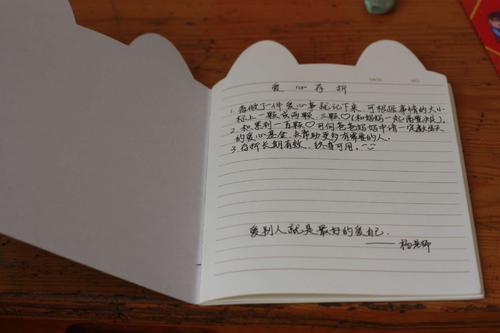 爱心存折
1. 每做了一件爱心事就记下来,可根据事情的大小
标上一颗或两颗、三颗♡(和妈妈一起商量决定)。
2. 积累到一百颗♡可向爸爸妈妈申请一定数额
的爱心基金,去帮助更多有需要的人。
3. 存折长期有效,终身可用。
爱别人就是最好的爱自己.
——杨老师